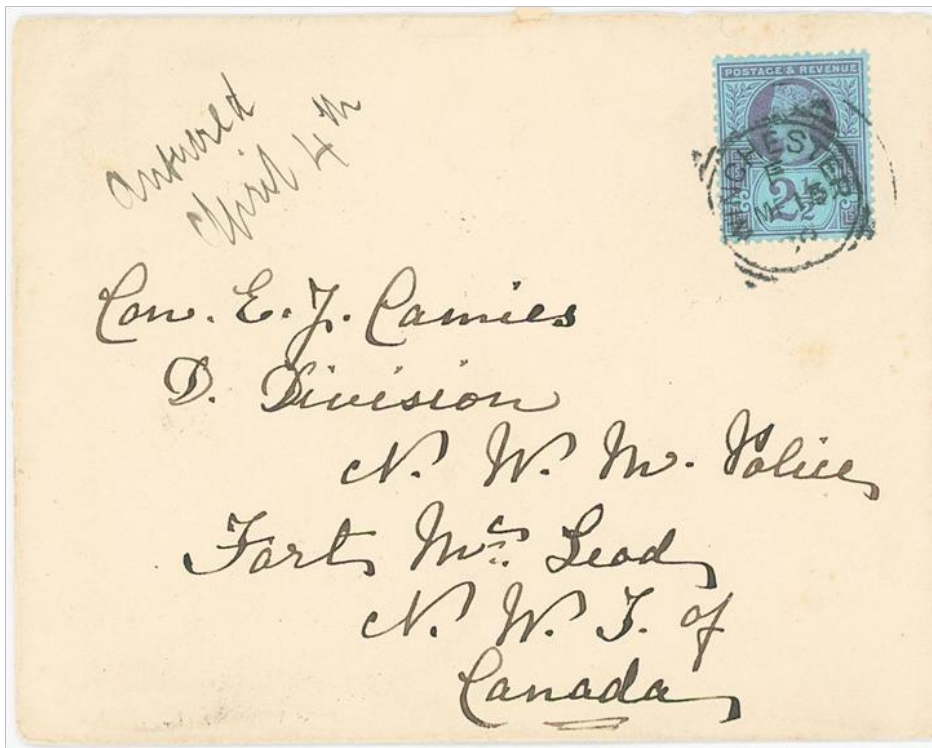 Answered
April 4th
POSTAGE & REVENUE
WINCHESTER
E
MR 15
2½
Con. E. J. Camies
D. Division
N. W. M. Police
Fort Mc Leod
N. W. T. of
Canada